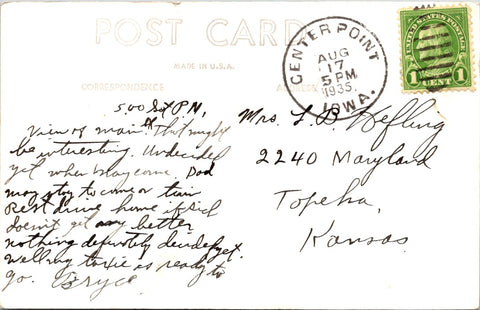 POST CARD
MADE IN U.S.A.
CORRESPONDENCE
ADDRESS
CENTER POINT
AUG
17
5 PM
1935
IOWA.
UNITED STATES POSTAGE
1 CENT 1
View of main St. That might
be interesting. Undecided
yet when may come. Dad
may try to come on train
Rest drive home if Sid
doesn't get any better
nothing definitely decided yet.
is ready to
go. Bryce
Mrs. L. B. Hefling
2240 Maryland
Topeka,
Kansas.